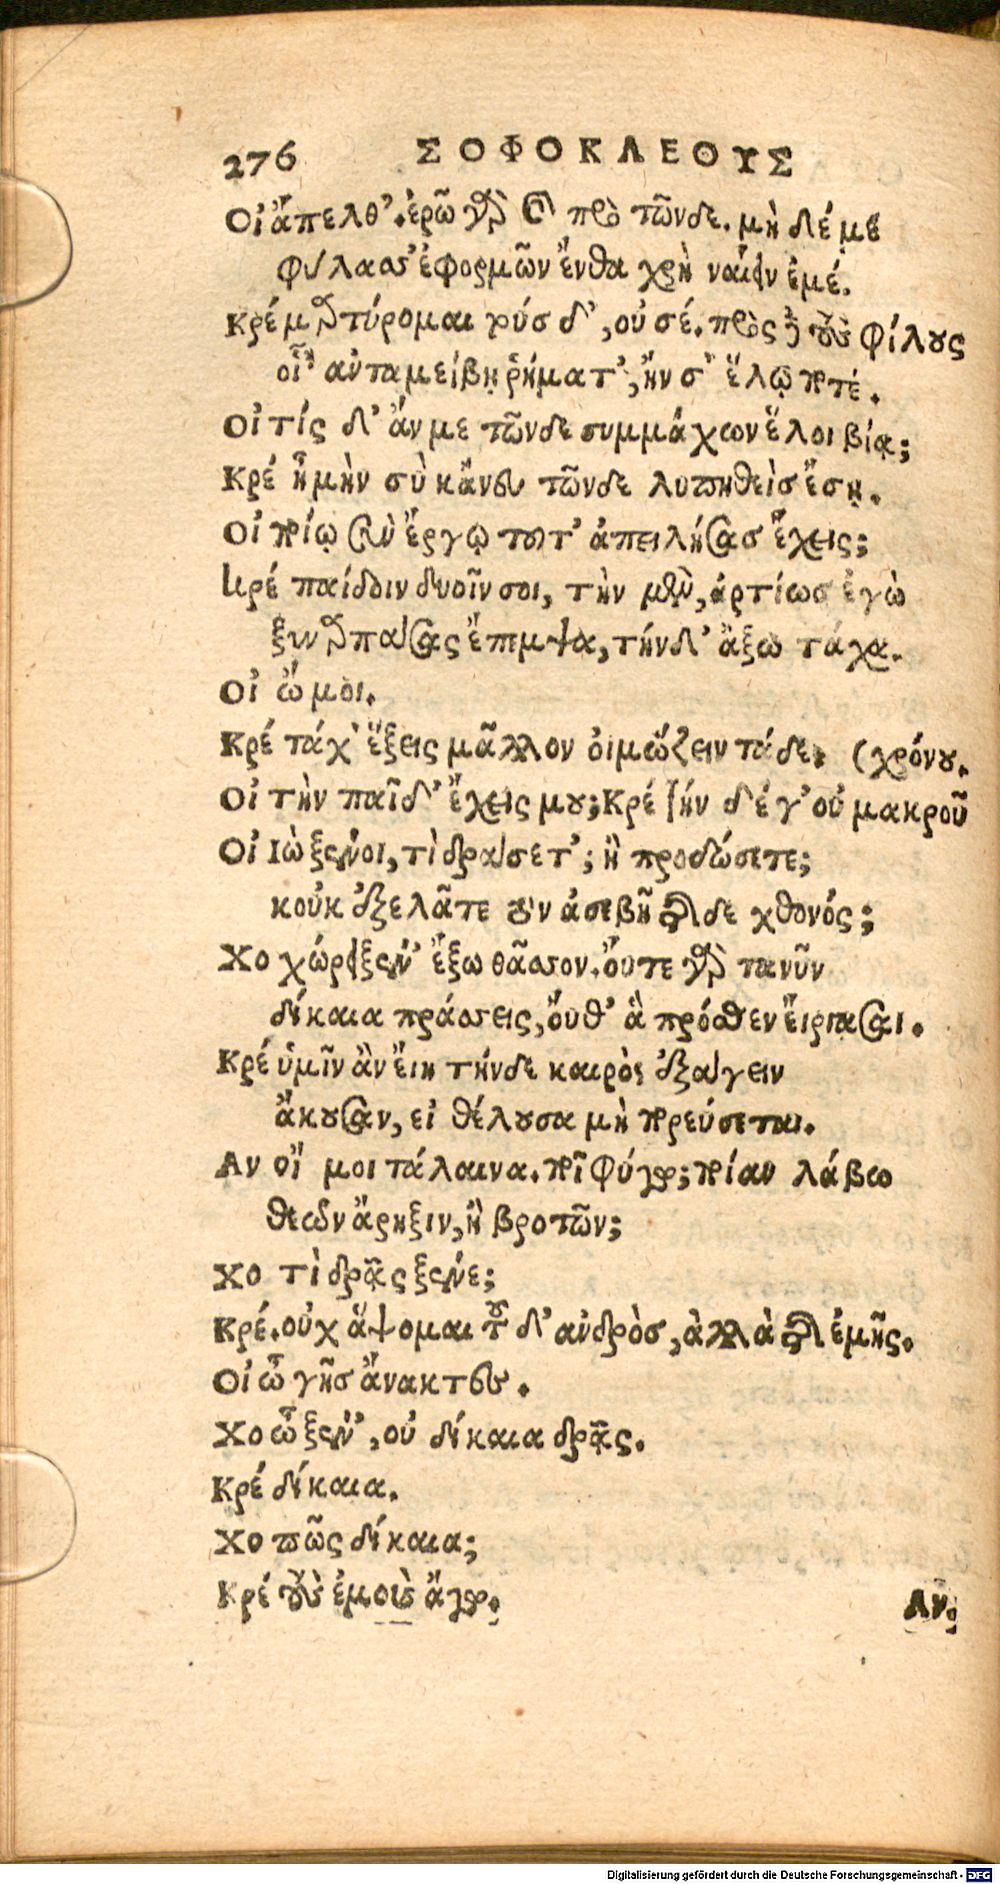 276 ΣΟΦΟΚΛΕΟΥΣ
Οἰ ἄπελθ’. ἐρῶ γὰρ καὶ πρὸ τῶνδε. μὴ δέ με
φύλασσ’ ἐφορμῶν ἔνθα χρὴ ναίειν ἐμέ.
Κρέ μαρτύρομαι τούσδ’, οὐ σέ. πρὸς δὲ τοὺς φίλους
οἷ’ ἀνταμείβῃ ῥήματ’, ἤν σ’ ἕλω ποτέ.
Οἰ τίς δ’ ἄν με τῶνδε συμμάχων ἕλοι βίᾳ;
Κρέ ἦ μὴν σὺ κἄνευ τῶνδε λυπηθεὶς ἔσῃ.
Οἰ ποίῳ σὺν ἔργῳ τοῦτ’ ἀπειλήσας ἔχεις;
Κρέ παίδοιν δυοῖν σοι, τὴν μὲν, ἀρτίως ἐγὼ
ξυναρπάσας ἔπεμψα, τὴν δ’ ἄξω τάχα.
Οἰ ὤ μοι.
Κρέ τάχ’ ἕξεις μᾶλλον οἰμώζειν τάδε. (χρόνου.
Οἰ τὴν παῖδ’ ἔχεις μου; Κρέ τήν δέ γ’ οὐ μακροῦ
Οἰ Ἰὼ ξένοι, τὶ δράσετ’; ἢ προδώσετε;
κοὐκ ἐξελᾶτε τὸν ἀσεβῆ τῆσδε χθονός;
Χο χώρει ξέν’ ἔξω θᾶσσον. οὔτε γὰρ τανῦν
δίκαια πράσσεις, οὔθ’ ἃ πρόσθεν εἴργασαι.
Κρέ ὑμῖν ἂν εἴη τήνδε καιρὸς ἐξάγειν
ἄκουσαν, εἰ θέλουσα μὴ πορεύσεται.
Αν οἴ μοι τάλαινα. ποῖ φύγω; ποίαν λάβω
θεῶν ἄρηξιν, ἢ βροτῶν;
Χο τὶ δρᾷς ξένε;
Κρέ. οὐχ ἅψομαι τοῦδ’ ἀνδρὸς, ἀλλὰ τῆς ἐμῆς.
Οἰ ὦ γῆς ἄνακτες.
Χο ὦ ξέν’, οὐ δίκαια δρᾷς.
Κρέ δίκαια.
Χο πῶς δίκαια;
Κρέ τοὺς ἐμοὺς ἄγω.
Αν.
Digitalisierung gefördert durch die Deutsche Forschungsgemeinschaft - DFG